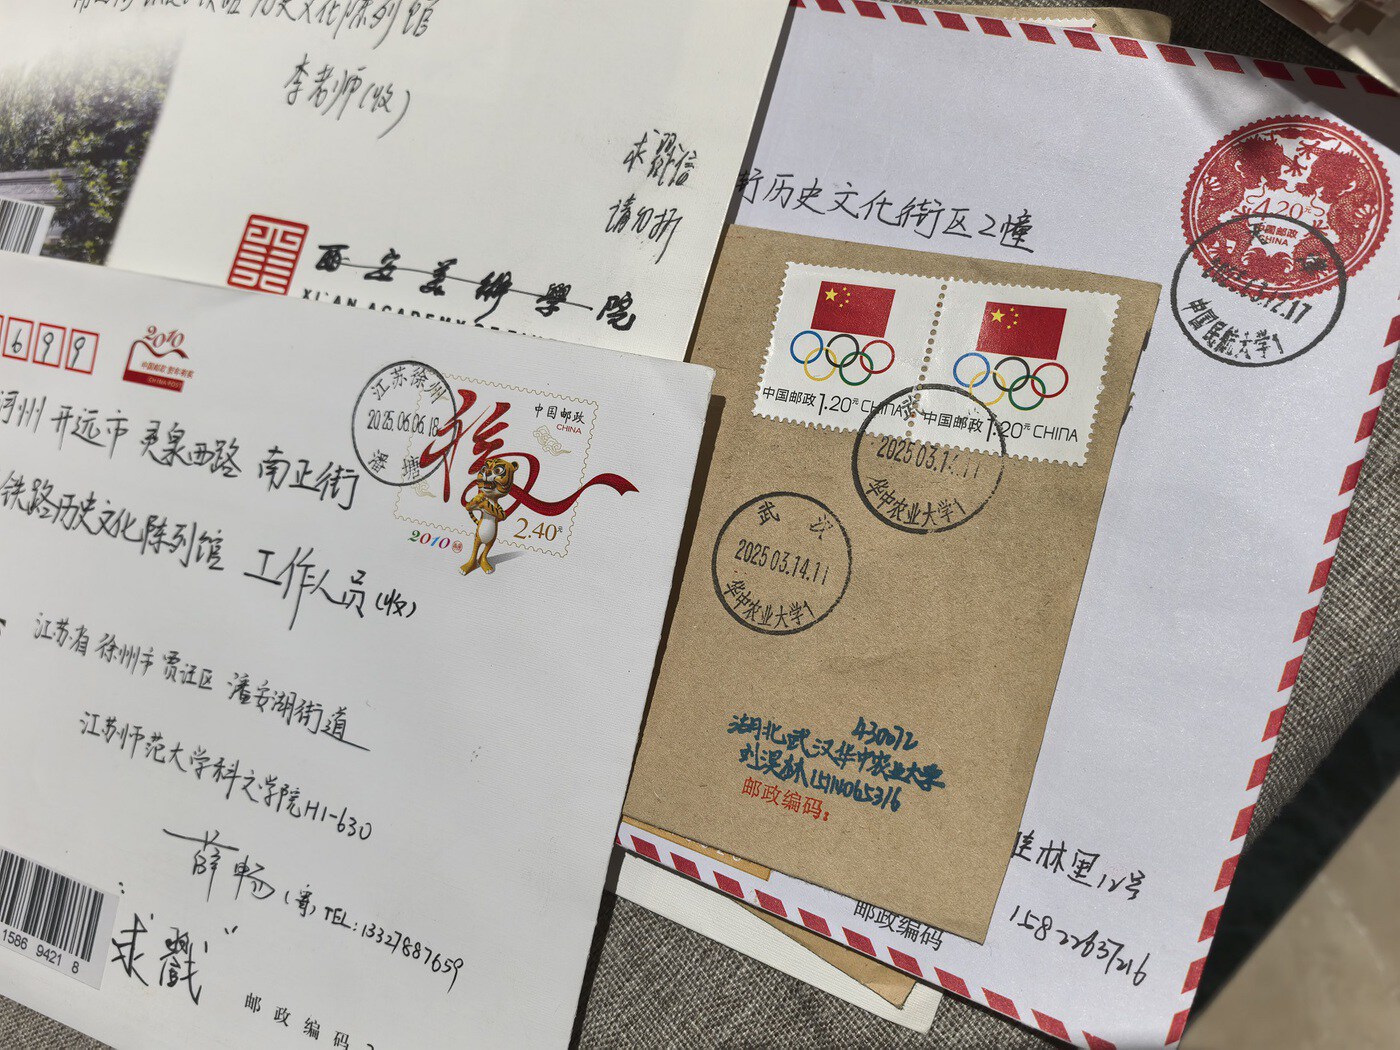 历史文化陈列馆
李老师(收)
求戳信
请勿折
西安美術學院
XI'AN ACADEMY OF
699
2010
中国邮政 贺年有奖
CHINA POST
江苏徐州
2025.06.06.18
潘塘
中国邮政
CHINA
福
2.40元
2010
州 开远市 灵泉西路 南正街
铁路历史文化陈列馆 工作人员(收)
江苏省 徐州市 贾汪区 潘安湖街道
江苏师范大学科文学院H1-630
薛畅(寄)TEL:13327887659
"求戳"
1586 9421 8
邮政编码
街历史文化街区2幢
4.20元
中国邮政
CHINA
中国民航大学1
中国邮政1.20元CHINA
中国邮政1.20元CHINA
武
2025.03.14.11
华中农业大学1
武汉
2025.03.14.11
华中农业大学1
430072
湖北武汉华中农业大学
邮政编码:
桂林里12号
邮政编码